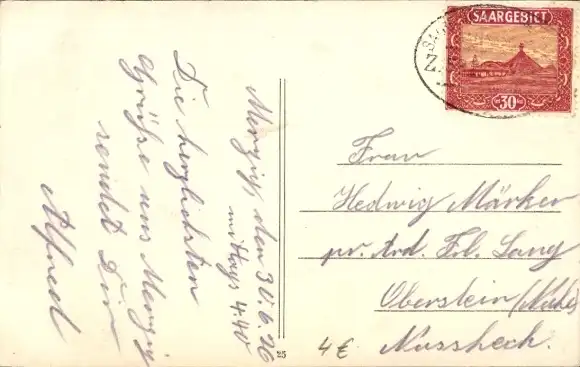 SAARGEBIET
30
Merzig, den 30.6.26
mittags 4.40
Die herzlichsten
Grüße aus Merzig
sendet Dir
Alfred
Frau
Hedwig Märker
pr. Ard. Frl. Lang
Oberstein (Nahe)
Nussheck.
4 €
25